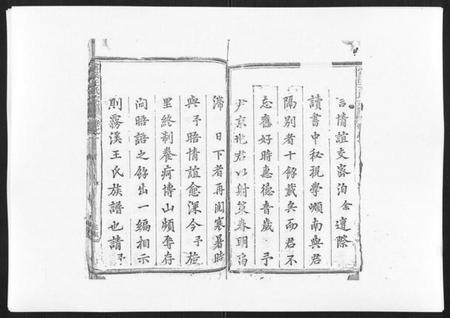 言情誼交密泊余遭際
讀書中秘視學嶺南與君
隔別者十餘載矣而君不
忘舊好時惠德音歲予
尹京兆君以射策春明泊
滯日下者再閱寒暑時
與予晤情誼愈深今予旋
里終制養疴博山頻季存
問晤語之餘出一編相示
則霧溪王氏族譜也請予